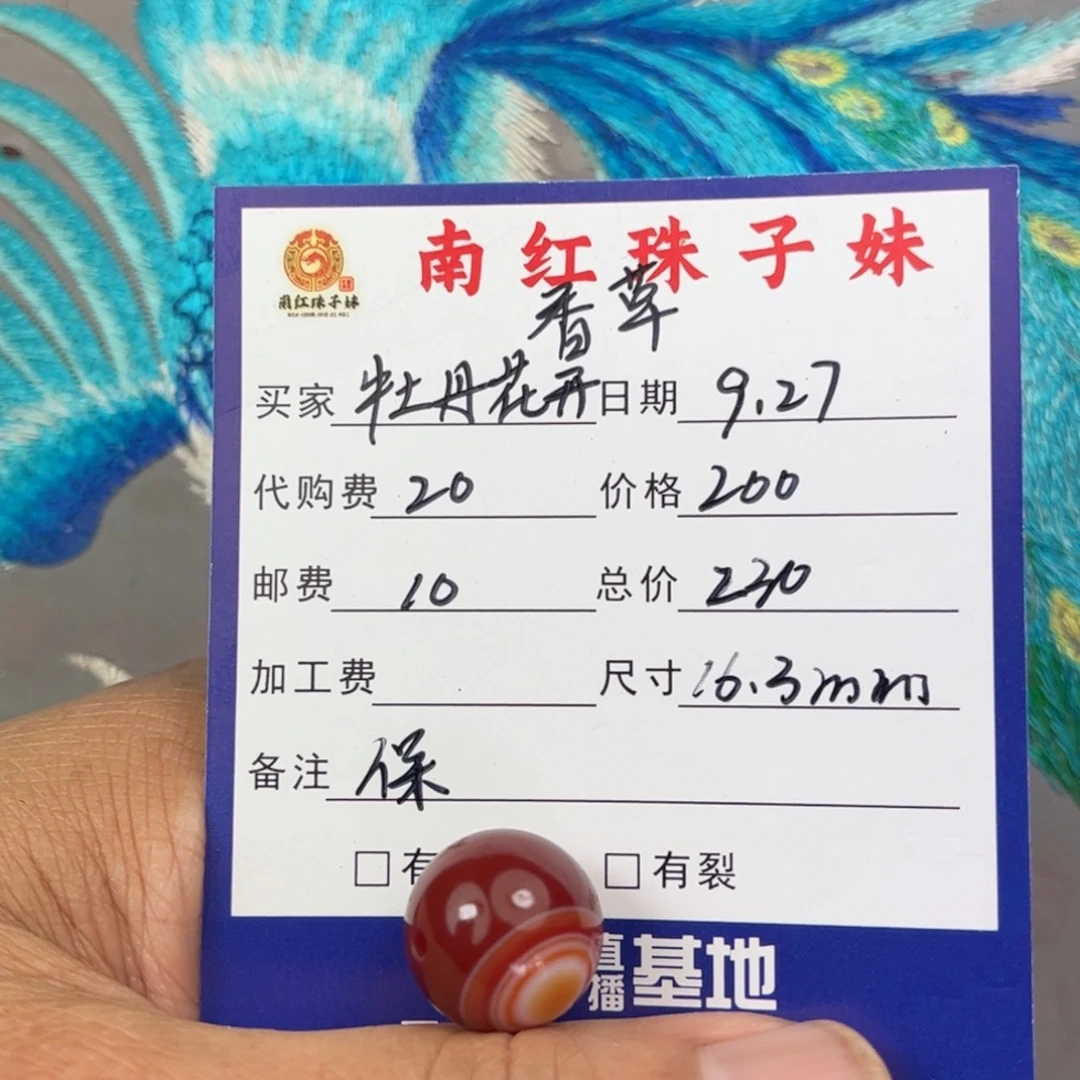 南红珠子妹
南红珠子妹
香草
买家 牡丹花开 日期 9.27
代购费 20 价格 200
邮费 10 总价 230
加工费 尺寸 16.3mm
备注 保
□有 □有裂
直播基地